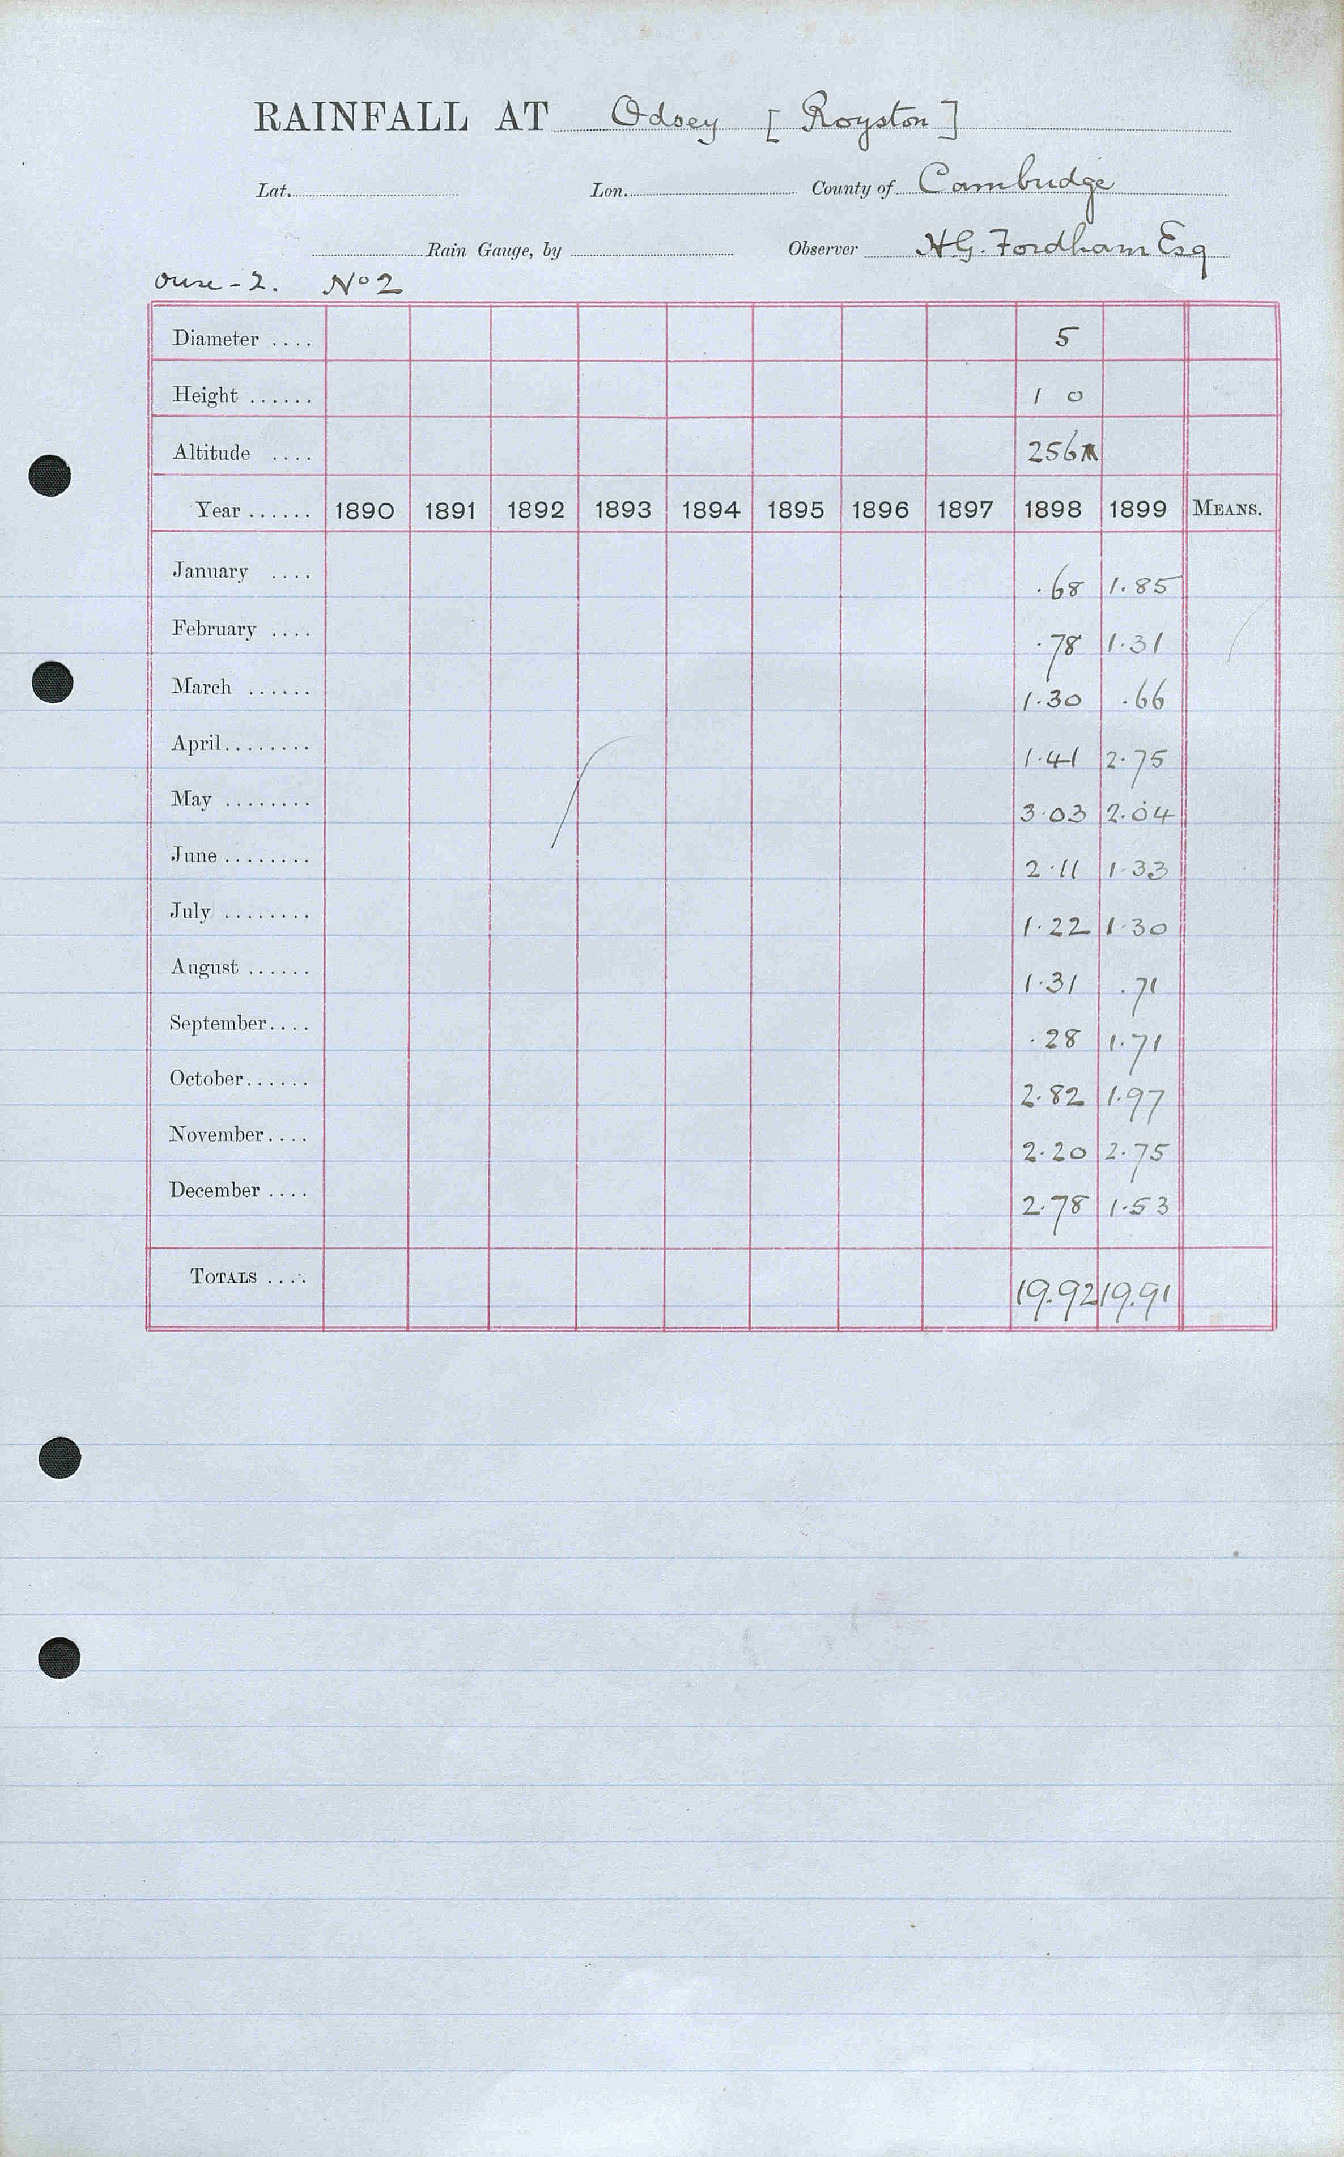 RAINFALL AT Odsey [Royston]
Lat. Lon. County of Cambridge
Rain Gauge, by Observer H.G. Fordham Esq
Ouse - 2. No 2
Diameter .... 5
Height ...... 1 0
Altitude .... 256
Year ...... 1890 1891 1892 1893 1894 1895 1896 1897 1898 1899 MEANS.
January .... .68 1.85
February .... .78 1.31
March ...... 1.30 .66
April........ 1.41 2.75
May ........ 3.03 2.04
June ........ 2.11 1.33
July ........ 1.22 1.30
August ...... 1.31 .71
September.... .28 1.71
October...... 2.82 1.97
November.... 2.20 2.75
December .... 2.78 1.53
TOTALS .... 19.92 19.91